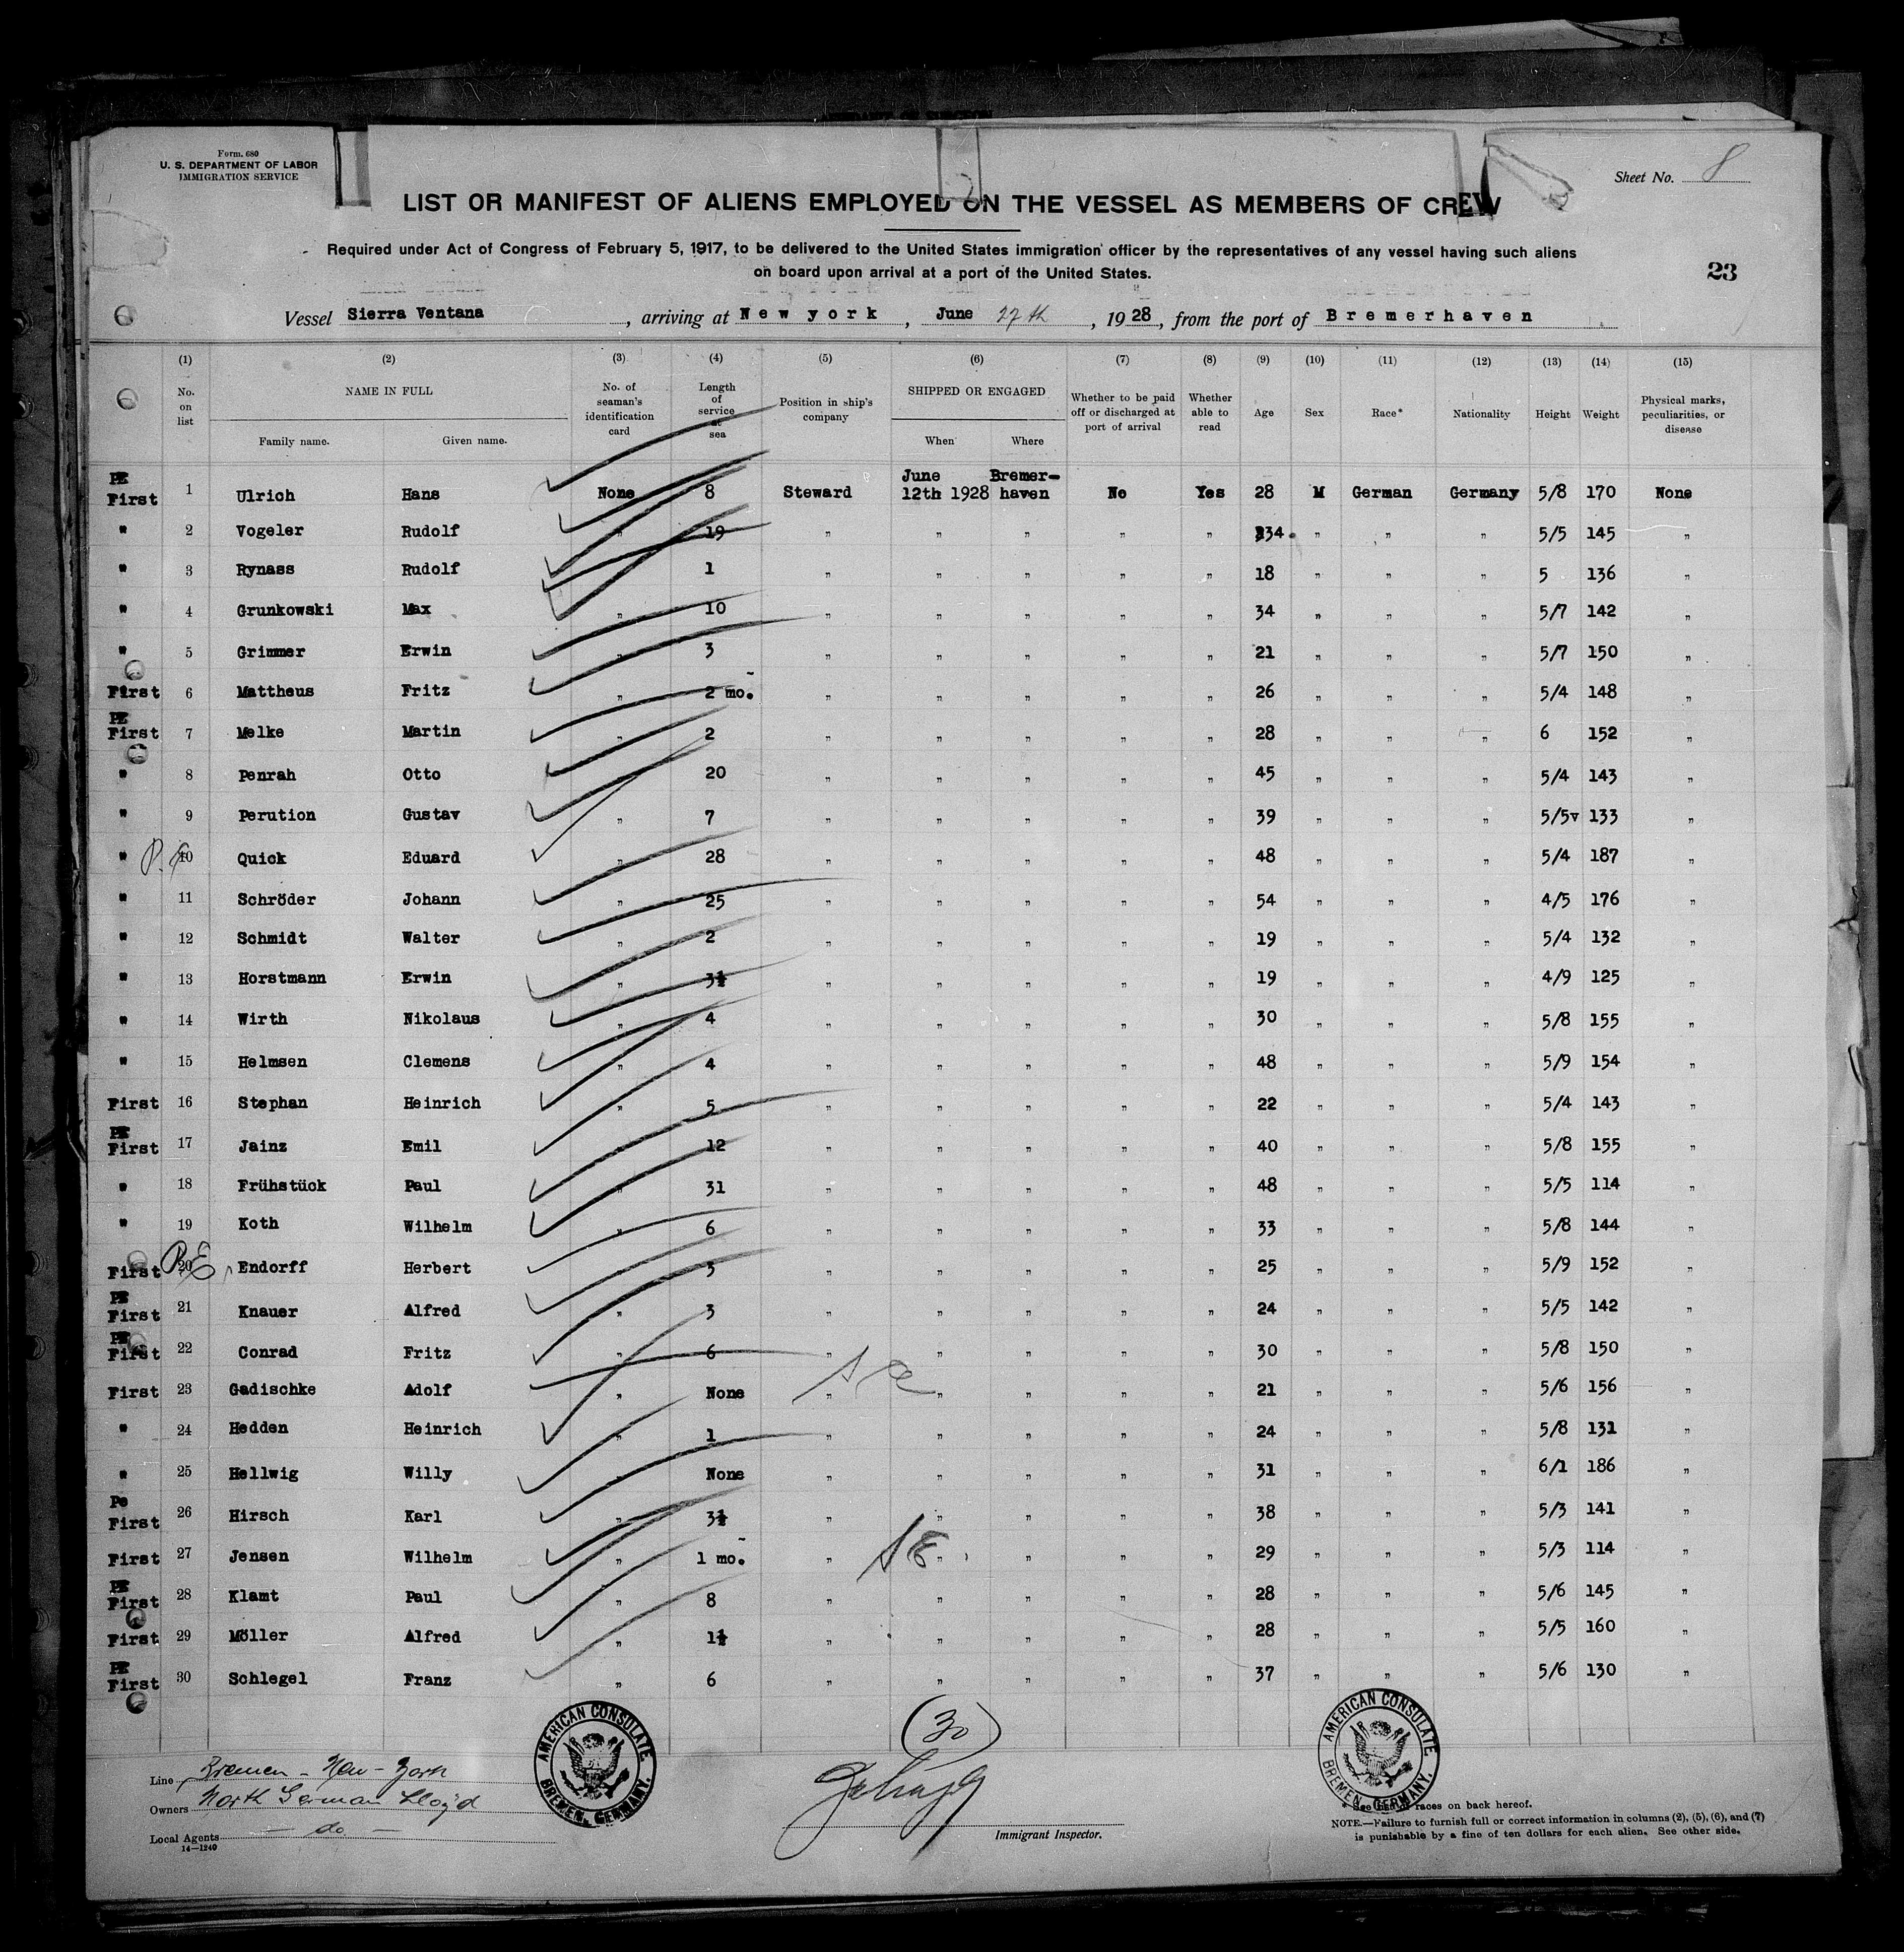 Form. 680
U. S. DEPARTMENT OF LABOR
IMMIGRATION SERVICE
Sheet No. 8
2
LIST OR MANIFEST OF ALIENS EMPLOYED ON THE VESSEL AS MEMBERS OF CREW
Required under Act of Congress of February 5, 1917, to be delivered to the United States immigration officer by the representatives of any vessel having such aliens
on board upon arrival at a port of the United States.
23
Vessel Sierra Ventana, arriving at New york, June 27th, 1928, from the port of Bremerhaven
(1) (2) (3) (4) (5) (6) (7) (8) (9) (10) (11) (12) (13) (14) (15)
No. on list NAME IN FULL Family name. Given name. No. of seaman's identification card Length of service at sea Position in ship's company SHIPPED OR ENGAGED When Where Whether to be paid off or discharged at port of arrival Whether able to read Age Sex Race* Nationality Height Weight Physical marks, peculiarities, or disease
PE First 1 Ulrich Hans None 8 Steward June 12th 1928 Bremer-haven No Yes 28 M German Germany 5/8 170 None
" 2 Vogeler Rudolf " 19 " " " " " 34 " " " 5/5 145 "
" 3 Rynass Rudolf " 1 " " " " " 18 " " " 5 136 "
" 4 Grunkowski Max " 10 " " " " " 34 " " " 5/7 142 "
" 5 Grimmer Erwin " 3 " " " " " 21 " " " 5/7 150 "
First 6 Mattheus Fritz " 2 mo. " " " " " 26 " " " 5/4 148 "
PE First 7 Melke Martin " 2 " " " " " 28 " " " 6 152 "
" 8 Penrah Otto " 20 " " " " " 45 " " " 5/4 143 "
" 9 Perution Gustav " 7 " " " " " 39 " " " 5/5 133 "
" 10 Quick Eduard " 28 " " " " " 48 " " " 5/4 187 "
" 11 Schröder Johann " 25 " " " " " 54 " " " 4/5 176 "
" 12 Schmidt Walter " 2 " " " " " 19 " " " 5/4 132 "
" 13 Horstmann Erwin " 3½ " " " " " 19 " " " 4/9 125 "
" 14 Wirth Nikolaus " 4 " " " " " 30 " " " 5/8 155 "
" 15 Helmsen Clemens " 4 " " " " " 48 " " " 5/9 154 "
First 16 Stephan Heinrich " 5 " " " " " 22 " " " 5/4 143 "
PE First 17 Jainz Emil " 12 " " " " " 40 " " " 5/8 155 "
" 18 Frühstück Paul " 31 " " " " " 48 " " " 5/5 114 "
" 19 Koth Wilhelm " 6 " " " " " 33 " " " 5/8 144 "
First P.E 20 Endorff Herbert " 3 " " " " " 25 " " " 5/9 152 "
PE First 21 Knauer Alfred " 3 " " " " " 24 " " " 5/5 142 "
PE First 22 Conrad Fritz " 6 " " " " " 30 " " " 5/8 150 "
First 23 Gadischke Adolf " None " " " " " 21 " " " 5/6 156 "
" 24 Hedden Heinrich " 1 " " " " " 24 " " " 5/8 131 "
" 25 Hellwig Willy " None " " " " " 31 " " " 6/1 186 "
Pe First 26 Hirsch Karl " 3½ " " " " " 38 " " " 5/3 141 "
First 27 Jensen Wilhelm " 1 mo. " " " " " 29 " " " 5/3 114 "
PE First 28 Klamt Paul " 8 " " " " " 28 " " " 5/6 145 "
First 29 Möller Alfred " 1½ " " " " " 28 " " " 5/5 160 "
PE First 30 Schlegel Franz " 6 " " " " " 37 " " " 5/6 130 "
(30)
AMERICAN CONSULATE. BREMEN, GERMANY.
AMERICAN CONSULATE. BREMEN, GERMANY.
Line Bremen - New-York
Owners North German Lloyd
Local Agents - do -
14—1240
Immigrant Inspector.
* See list of races on back hereof.
NOTE.—Failure to furnish full or correct information in columns (2), (5), (6), and (7)
is punishable by a fine of ten dollars for each alien. See other side.